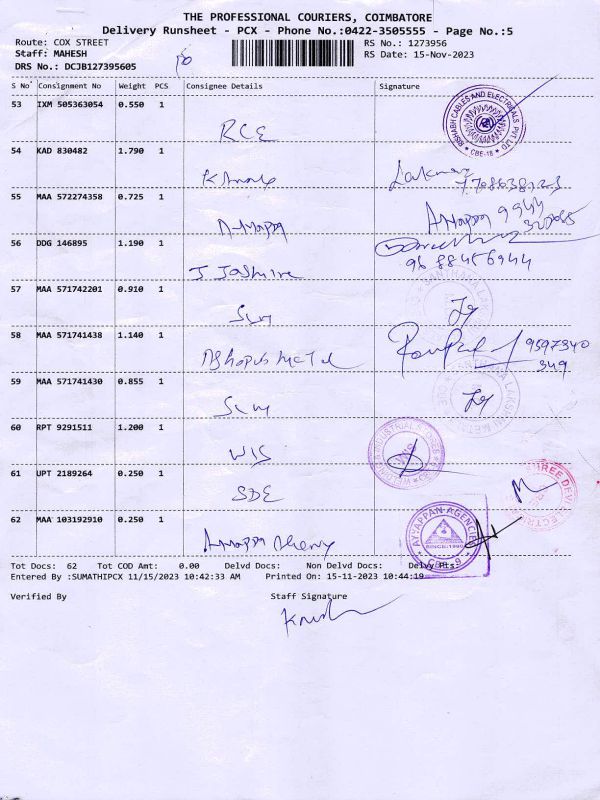 THE PROFESSIONAL COURIERS, COIMBATORE
Delivery Runsheet - PCX - Phone No.:0422-3505555 - Page No.:5
Route: COX STREET
RS No.: 1273956
Staff: MAHESH
RS Date: 15-Nov-2023
DRS No.: DCJB127395605
S No Consignment No Weight PCS Consignee Details Signature
53 IXM 505363054 0.550 1
RCE
RISHABH CABLES AND ELECTRICALS PVT LTD
CBE-18
54 KAD 830482 1.790 1
55 MAA 572274358 0.725 1
56 DDG 146895 1.190 1
J Jasmine
9688456944
57 MAA 571742201 0.910 1
58 MAA 571741438 1.140 1
9597340
349
59 MAA 571741430 0.855 1
60 RPT 9291511 1.200 1
WIS
61 UPT 2189264 0.250 1
SDE
62 MAA 103192910 0.250 1
AYYAPPAN AGENCIES
SINCE:1990
CBE-9
Tot Docs: 62 Tot COD Amt: 0.00 Delvd Docs: Non Delvd Docs: Delvy Pts:
Entered By :SUMATHIPCX 11/15/2023 10:42:33 AM Printed On: 15-11-2023 10:44:19
Verified By Staff Signature